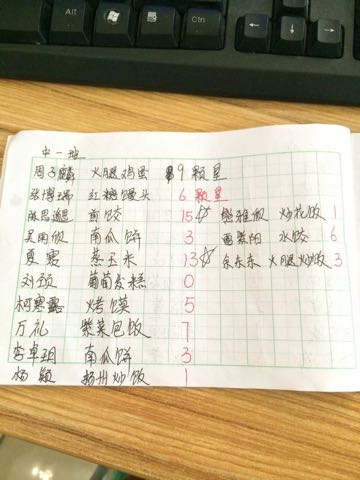 Alt
Ctrl
中一班
周子麟 火腿鸡蛋 9颗星
张博瑞 红糖馒头 6颗星
陈思邈 煎饺 15☆ 雅假 炒花饭 1
吴雨假 南瓜饼 3 紫阳 水饺 6
夏雯 蒸玉米 13☆ 余东东 火腿炒饭 3
刘颈 葡萄发糕 0
柯寒露 烤馍 5
万礼 紫菜包饭 1
李卓玥 南瓜饼 3
杨颖 扬州炒饭 1